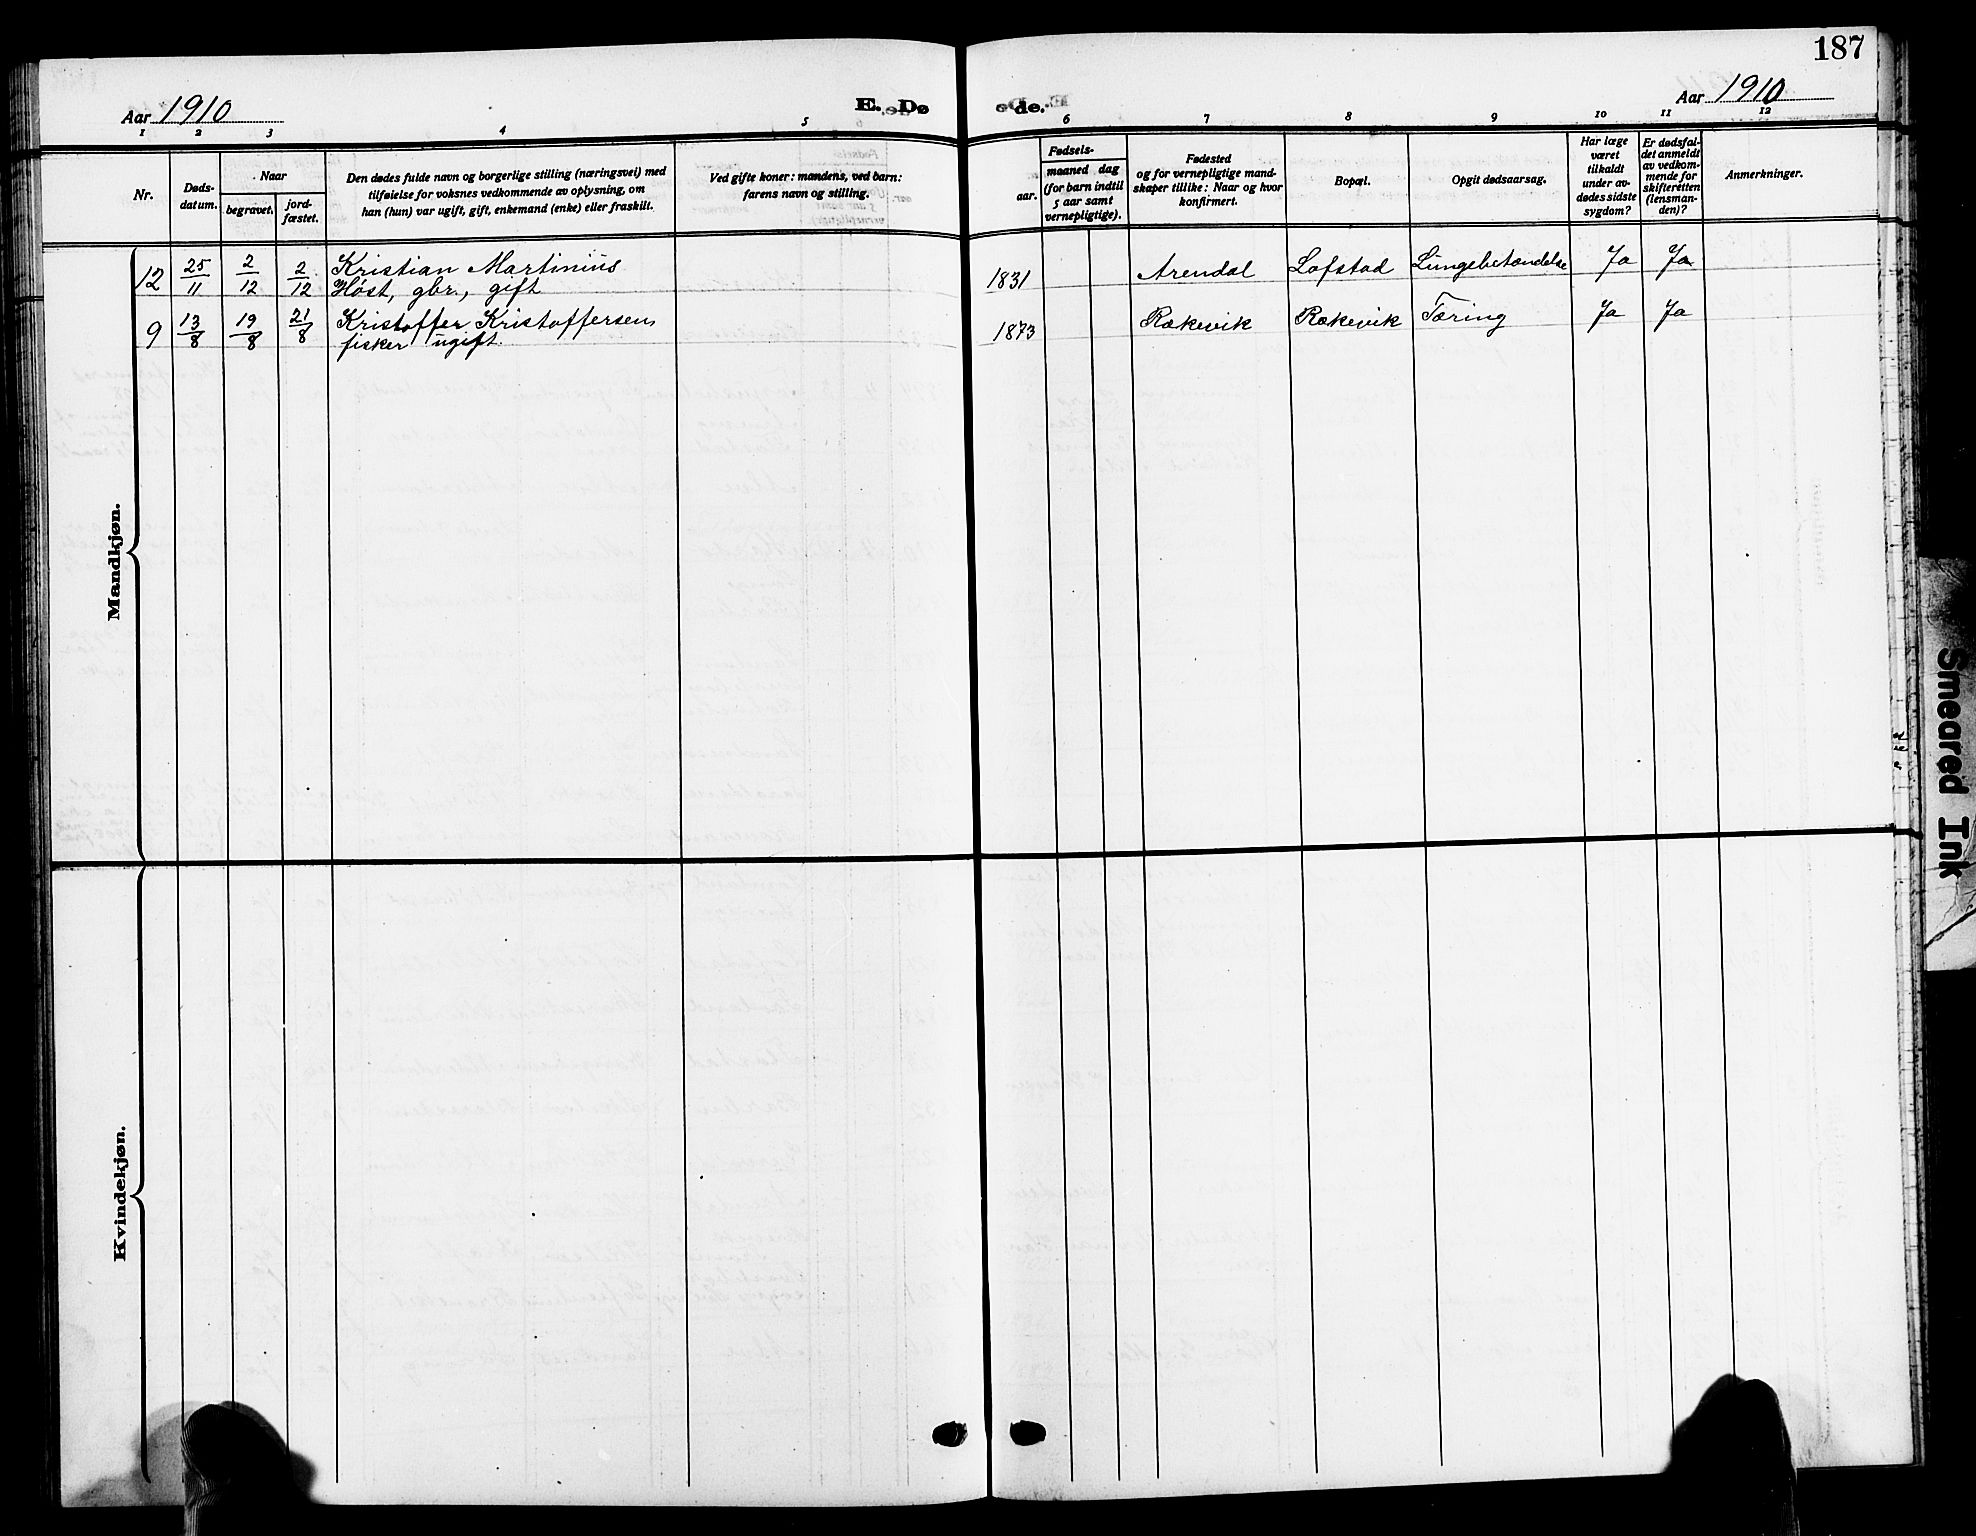 187
Aar 1910
E. Dø
de.
Aar 1910
1 2 3 4 5 6 7 8 9 10 11 12
Nr.
Døds-
datum.
Naar
begravet.
jord-
fæstet.
Den dødes fulde navn og borgerlige stilling (næringsvei) med
tilføielse for voksnes vedkommende av oplysning, om
han (hun) var ugift, gift, enkemand (enke) eller fraskilt.
Ved gifte koner: mandens, ved barn:
farens navn og stilling.
Fødsels-
aar.
maaned dag
(for barn indtil
5 aar samt
vernepligtige).
Fødested
og for vernepligtige mand-
skaper tillike: Naar og hvor
konfirmert.
Bopæl.
Opgit dødsaarsag.
Har læge
været
tilkaldt
under av-
dødes sidste
sygdom?
Er dødsfal-
det anmeldt
av vedkom-
mende for
skifteretten
(lensman-
den)?
Anmerkninger.
Mandkjøn.
12 25/11 2/12 2/12 Kristian Martinius 1831 Arendal Lofstad Lungebetændelse Ja Ja
Høst, gbr., gift
9 13/8 19/8 21/8 Kristoffer Kristoffersen 1873 Rækevik Rækevik Tæring Ja Ja
fisker ugift.
Kvindekjøn.
Smeared Ink